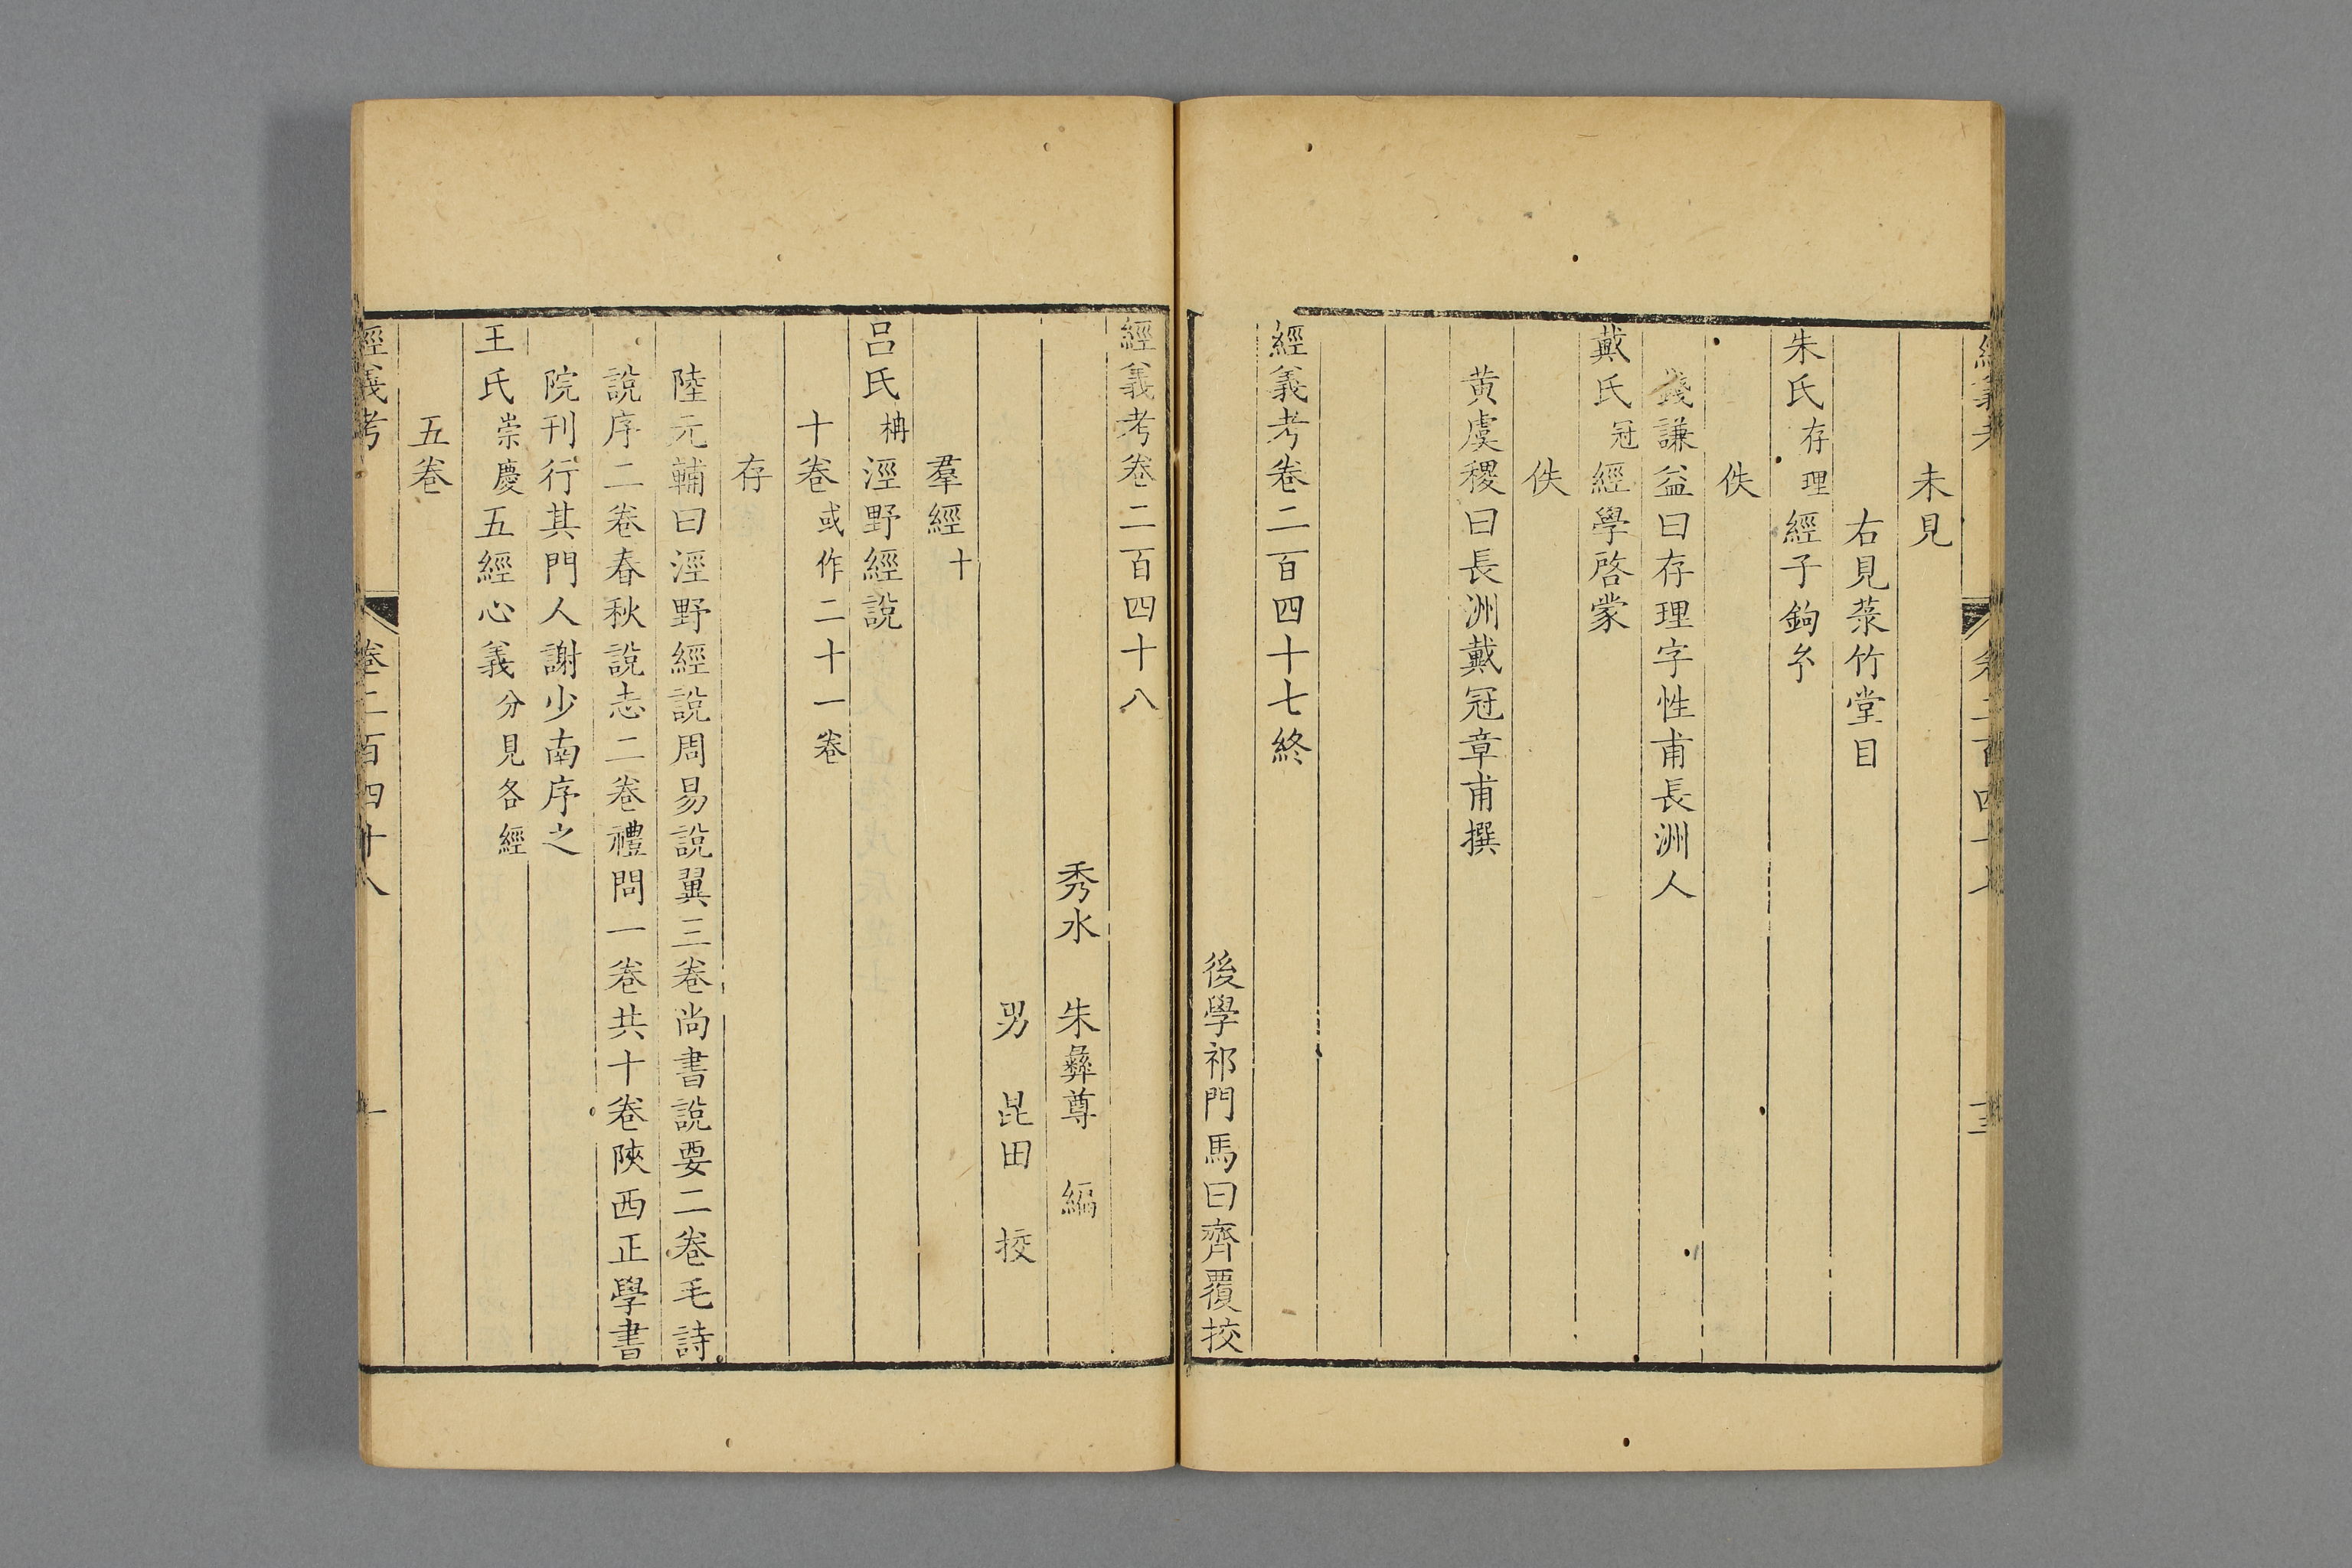 未見
右見菉竹堂目
朱氏存理經子鉤𤣥
佚
錢謙益曰存理字性甫長洲人
戴氏冠經學啓蒙
佚
黃虞稷曰長洲戴冠章甫撰
經義考卷二百四十七終
後學祁門馬曰齊覆挍
經義考卷二百四十八
秀水 朱彝尊 編
男 昆田 挍
羣經十
呂氏柟涇野經說
十卷或作二十一卷
存
陸元輔曰涇野經說周易說翼三卷尚書說要二卷毛詩
說序二卷春秋說志二卷禮問一卷共十卷陝西正學書
院刊行其門人謝少南序之
王氏崇慶五經心義分見各經
五卷
經義考 卷二百四十八 一